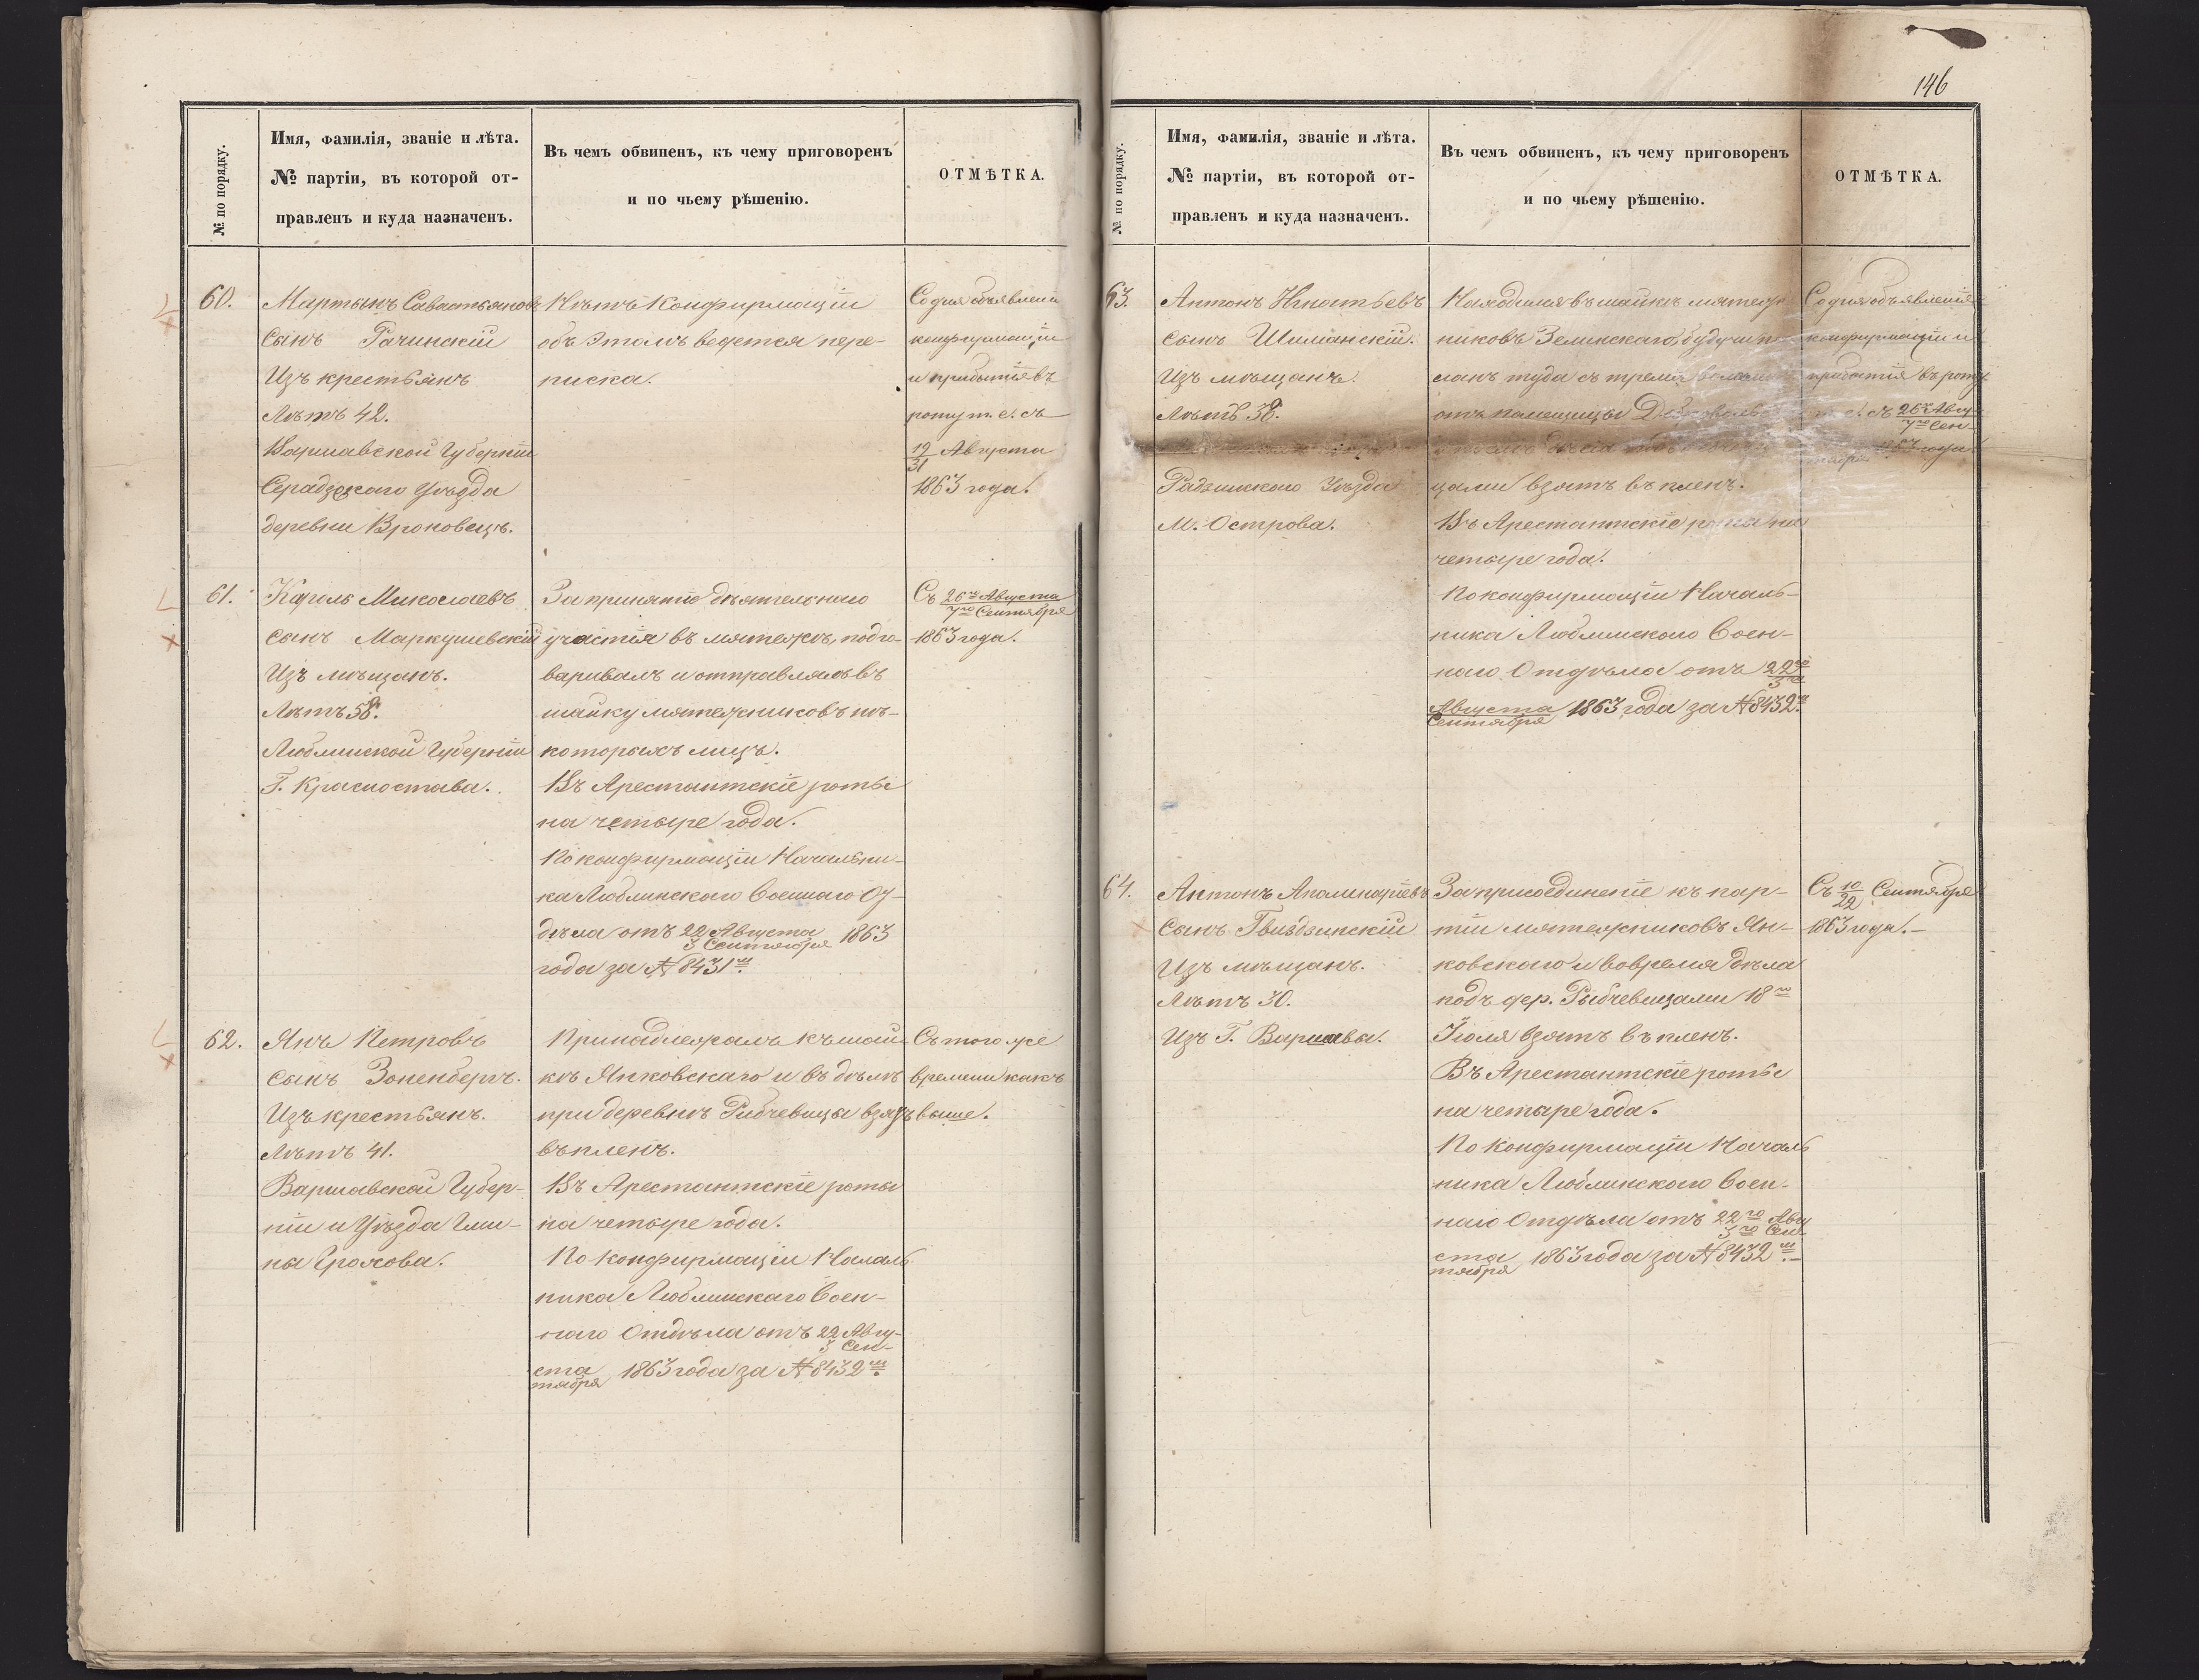 146
№ по порядку.
Имя, фамилія, званіе и лѣта.
№ партіи, въ которой от-
правленъ и куда назначенъ.
Въ чемъ обвиненъ, къ чему приговоренъ
и по чьему рѣшенію.
ОТМѢТКА.
60.
Мартынъ Савастьяновъ
сынъ Рачинскій
Изъ крестьянъ
Лѣтъ 42.
Варшавской Губерніи
Серадзскаго Уѣзда
деревни Вроковецъ.
Нѣтъ Конфирмаціи
объ этомъ ведется пере-
писка.
Со дня объявленія
конфирмаціи
и прибытія въ
роту т. е. съ
19/31 Августа
1863 года.
61.
Кароль Миколаевъ
сынъ Маркушевскій
Изъ мѣщанъ.
Лѣтъ 58.
Люблинской Губерніи
Г. Красностава.
За принятіе дѣятельнаго
участія въ мятежѣ, подго-
варивалъ и отправлялъ въ
шайку мятежниковъ нѣ-
которыхъ лицъ.
Въ Арестантскіе роты
на четыре года.
По конфирмаціи Начальни-
ка Люблинскаго Военнаго От-
дѣла отъ 22 Августа/3 Сентября 1863
года за № 8431мъ.
Съ 26го Августа/7го Сентября
1863 года.
62.
Янъ Петровъ
сынъ Зоненбергъ.
Изъ крестьянъ.
Лѣтъ 41.
Варшавской Губер-
ніи и Уѣзда Гми-
на Грохова.
Принадлежалъ къ шай-
кѣ Янковскаго и въ дѣлѣ
при деревнѣ Рибчевицы взятъ
въ пленъ.
Въ Арестантскіе роты
на четыре года.
По конфирмаціи Началь
ника Люблинскаго Воен-
наго Отдѣла отъ 22 Авгу-/3 Сен-
ста/тября 1863 года за № 8432мъ.
Съ того же
времени какъ
выше.
№ по порядку.
Имя, фамилія, званіе и лѣта.
№ партіи, въ которой от-
правленъ и куда назначенъ.
Въ чемъ обвиненъ, къ чему приговоренъ
и по чьему рѣшенію.
ОТМѢТКА.
63.
Антонъ Игнатьевъ
сынъ Шиманскій.
Изъ мѣщанъ.
Лѣтъ 38.
Радзинскаго Уѣзда
М. Острова.
Находился въ шайкѣ мятеж
никовъ Зелинскаго, будучи по
сланъ туда съ тремя
отъ помещицы
цами взятъ въ пленъ.
Въ Арестантскіе роты на
четыре года.
По конфирмаціи Началь-
ника Люблинскаго Воен-
наго Отдѣла отъ 22го/3го
Августа/Сентября 1863 года за № 8432.
Со дня объявленія
конфирмаціи и
прибытія въ роту
т. е. съ 26го Авгу/7го Сен-
тября года
64.
Антонъ Аполинаріевъ
сынъ Гвиздзинскій
Изъ мѣщанъ.
Лѣтъ 30.
Изъ Г. Варшавы.
За присоединеніе къ пар-
тіи мятежниковъ Ян-
ковскаго и вовремя дѣла
подъ дер. Рыбчевицами 18го
Іюля взятъ въ пленъ.
Въ Арестантскіе роты
на четыре года.
По Конфирмаціи Началь
ника Люблинскаго Воен-
наго Отдѣла отъ 22го Авгу/3го Сен-
ста/тября 1863 года за № 8432мъ.
Съ 10/22 Сентября
1863 года.